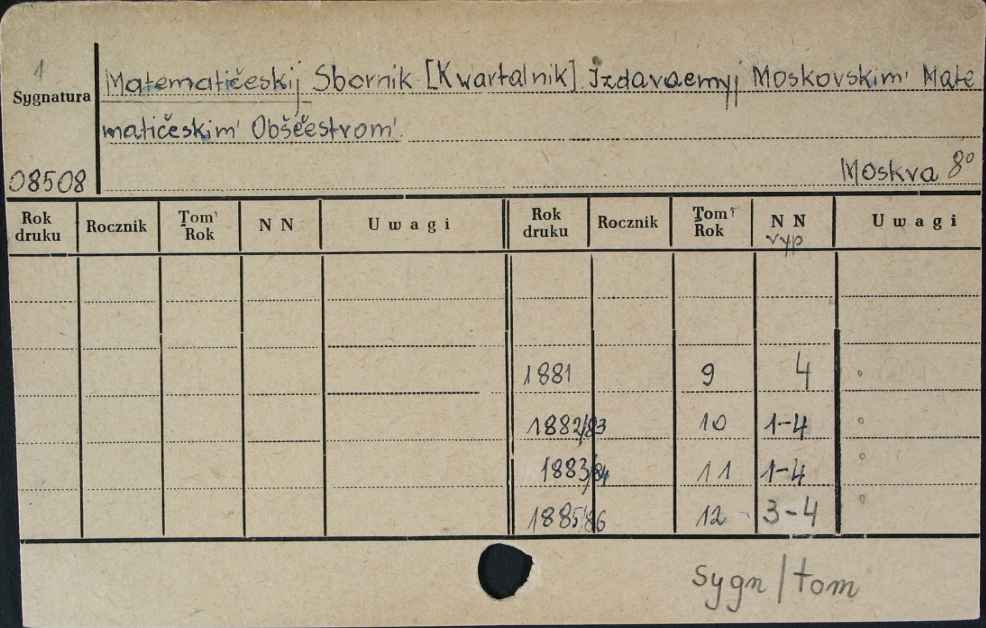 1
Matematičeskij Sbornik [Kwartalnik]. Izdavaemyj Moskovskim' Mate
Sygnatura
matičeskim' Obščestvom'.
08508
Moskva 8°
Rok druku Rocznik Tom Rok N N Uwagi Rok druku Rocznik Tom Rok N N vyp Uwagi
1881 9 4
1882/83 10 1-4
1883/84 11 1-4
1885/86 12 3-4
sygn/tom